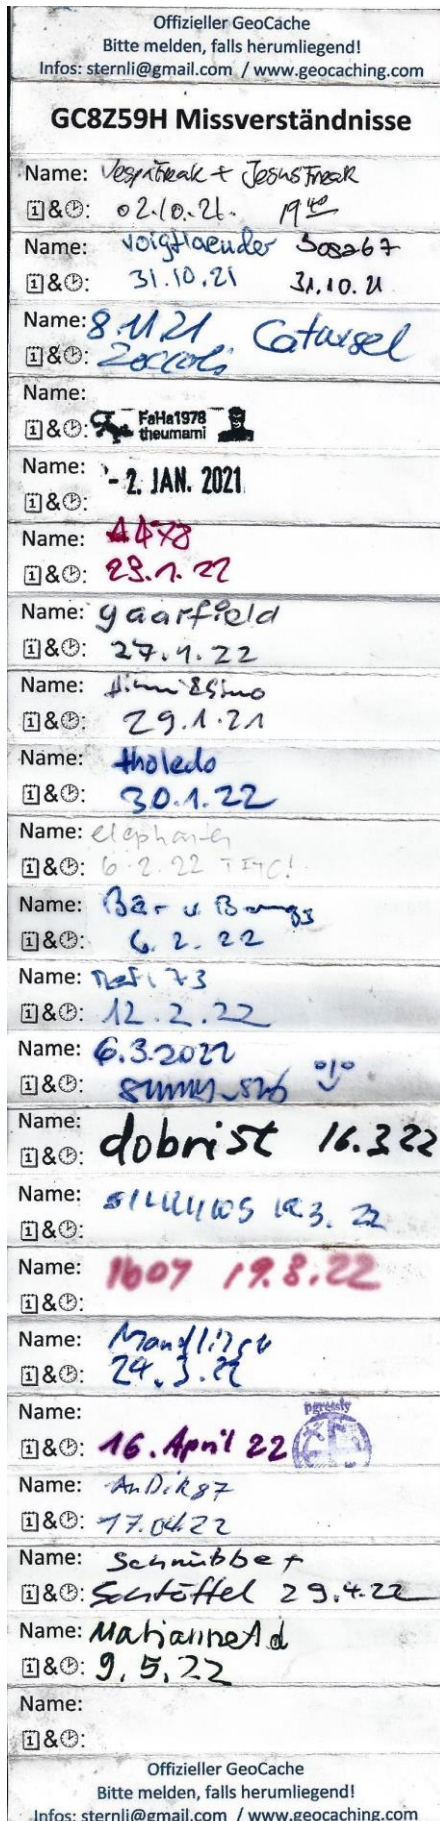 Offizieller GeoCache
Bitte melden, falls herumliegend!
Infos: sternli@gmail.com / www.geocaching.com
GC8Z59H Missverständnisse
Name: VespaFreak + JesusFreak
&: 02.10.21. 19⁴⁰
Name: voigtlaender Sosa67
&: 31.10.21 31.10.21
Name: 8.11.21 Catwisel
&: Zoccoli
Name:
&: FaHa1978
theumami
Name: - 2. JAN. 2021
&:
Name:
&: 23.1.22
Name: gaarfield
&: 27.1.22
Name:
&: 29.1.21
Name: tholedo
&: 30.1.22
Name:
&: 6.2.22 TFTC!
Name: Bär u.
&: 6.2.22
Name:
&: 12.2.22
Name: 6.3.2022
&:
Name:
&: dobrist 16.3.22
Name: 3. 22
&:
Name: 1607 19.8.22
&:
Name:
&: 24.3.22
Name: pgressly
&: 16. April 22
Name: AnDik87
&: 17.04.22
Name: Schnübbe +
&: Schtöffel 29.4.22
Name: MarianneAd
&: 9.5.22
Name:
&:
Offizieller GeoCache
Bitte melden, falls herumliegend!
Infos: sternli@gmail.com / www.geocaching.com